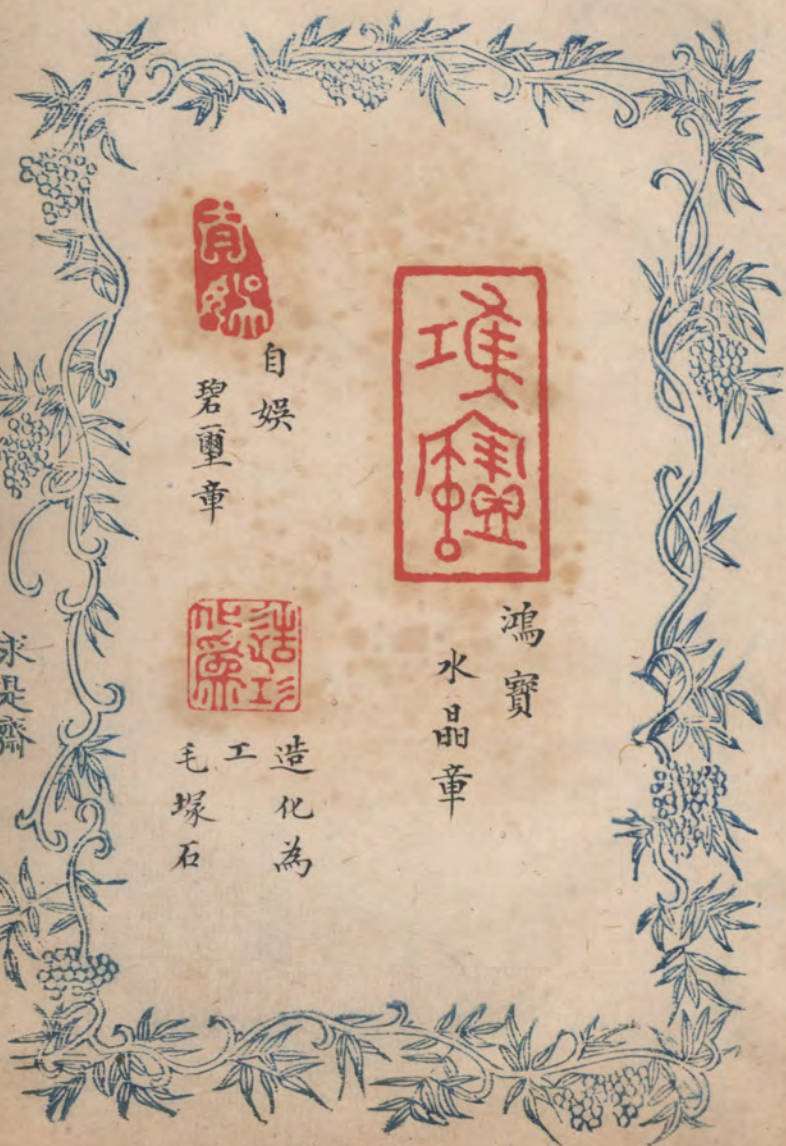 鴻寶
水晶章
自娛
碧壐章
造化為
工
毛塚石
求是齋